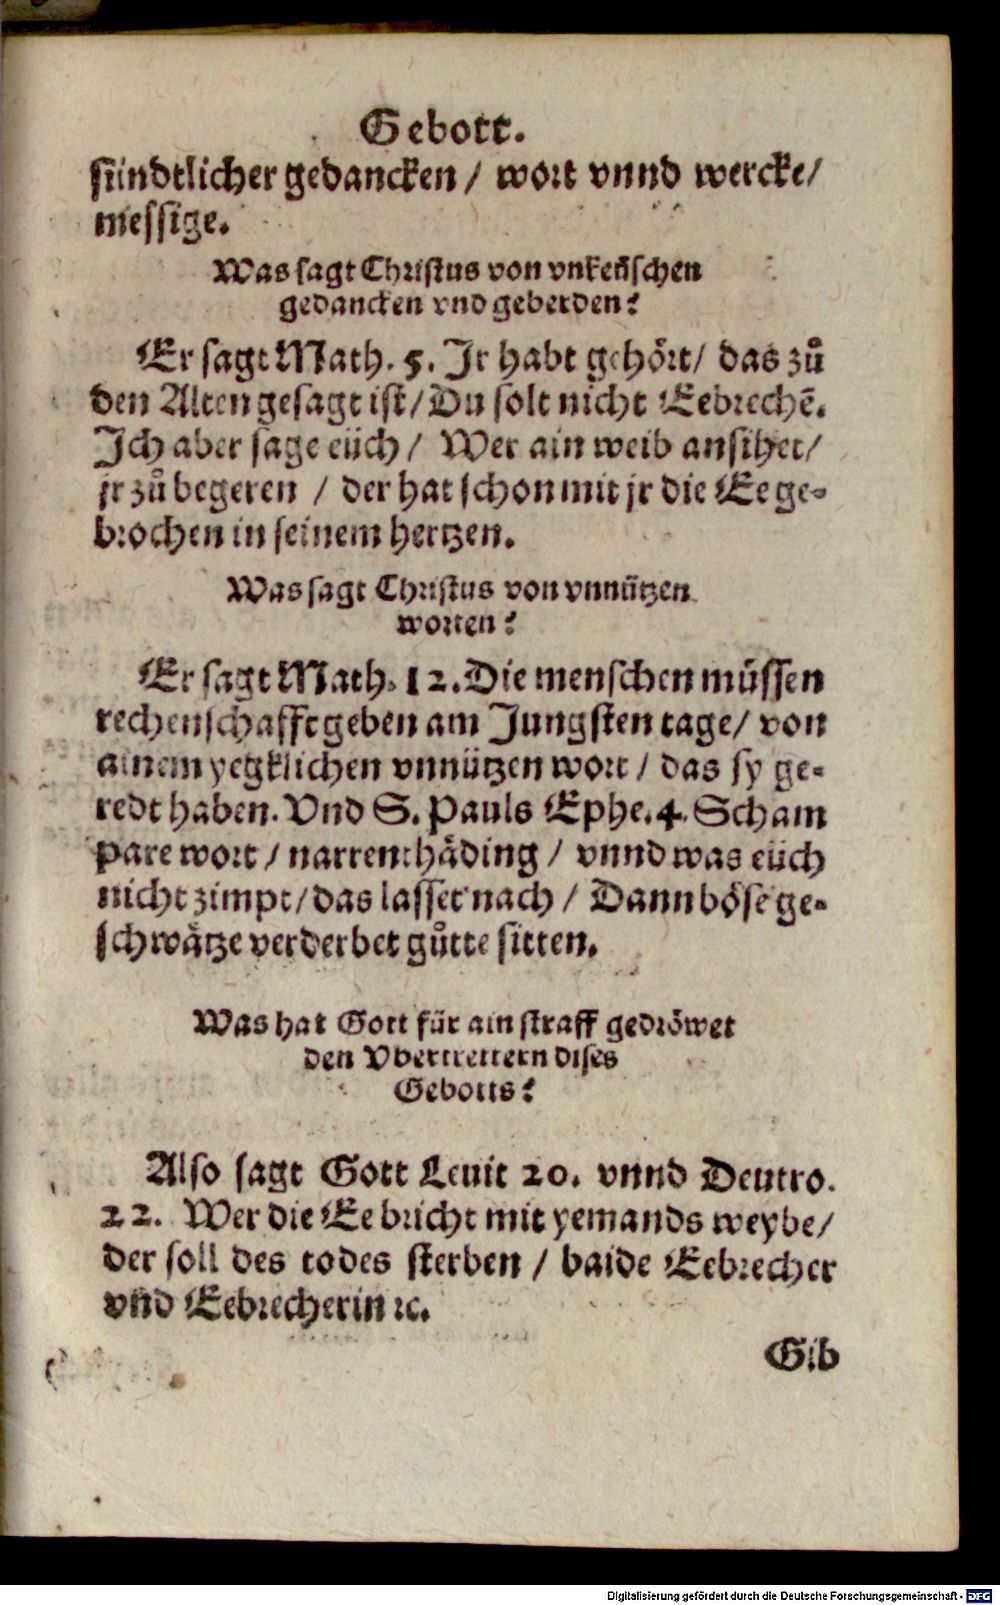 Gebott.
sündtlicher gedancken / wort vnnd wercke/
messige.
Was sagt Christus von vnkeüschen
gedancken vnd geberden?
Er sagt Math. 5. Jr habt gehört/ das zů
den Alten gesagt ist/Du solt nicht Eebrechē.
Jch aber sage eüch / Wer ain weib ansihet/
jr zů begeren / der hat schon mit jr die Ee ge-
brochen in seinem hertzen.
Was sagt Christus von vnnützen
worten?
Er sagt Math. 12. Die menschen müssen
rechenschafft geben am Jungsten tage/ von
ainem yegklichen vnnützen wort / das sy ge-
redt haben. Vnd S. Pauls Ephe. 4. Scham
pare wort / narrenthäding / vnnd was eüch
nicht zimpt/das lasset nach / Dann böse ge-
schwätze verderbet gůtte sitten.
Was hat Gott für ain straff gedröwet
den Vbertrettern dises
Gebotts?
Also sagt Gott Leuit 20. vnnd Deutro.
22. Wer die Ee bricht mit yemands weybe/
der soll des todes sterben / baide Eebrecher
vnd Eebrecherin ꝛc.
Gib
Digitalisierung gefördert durch die Deutsche Forschungsgemeinschaft - DFG